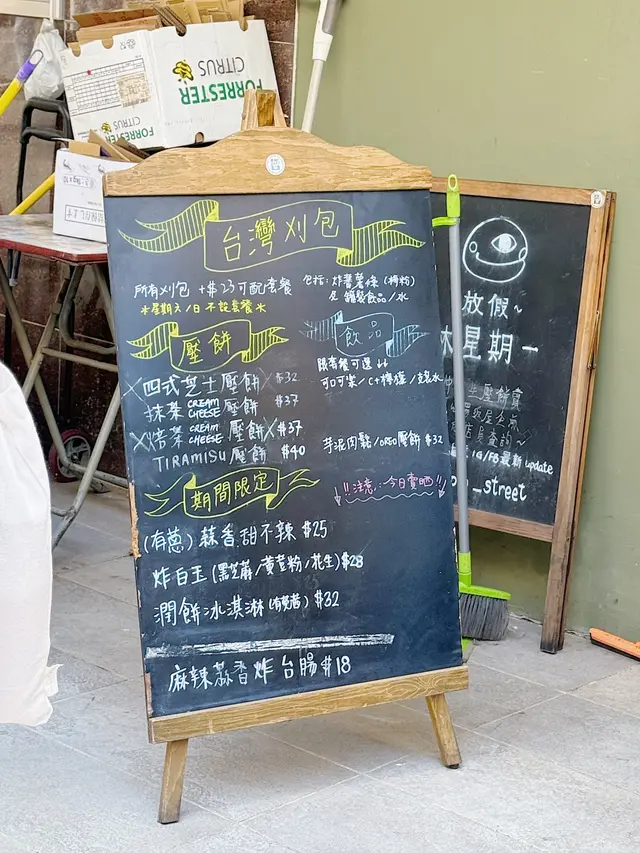 FORRESTER
CITRUS
FORRESTER
CITRUS
台灣刈包
所有刈包 +$23可配套餐
*星期六/日 不設套餐*
包括:炸番薯條(梅粉)
及 罐裝飲品/水
壓餅
四式芝士壓餅 $32
抹茶 CREAM CHEESE 壓餅 $37
焙茶 CREAM CHEESE 壓餅 $37
TIRAMISU 壓餅 $40
飲品
跟套餐可選
可口可樂/C+檸檬/
芋泥肉鬆/OREO壓餅 $32
期間限定
!!注意:今日賣晒!!
(有蔥) 蒜香甜不辣 $25
炸白玉(黑芝麻/黃荳粉/花生)$28
潤餅冰淇淋(有芫茜) $32
麻辣蒜香炸台腸$18
放假~
休星期一
壓餅賣
IG/FB最新update
_street